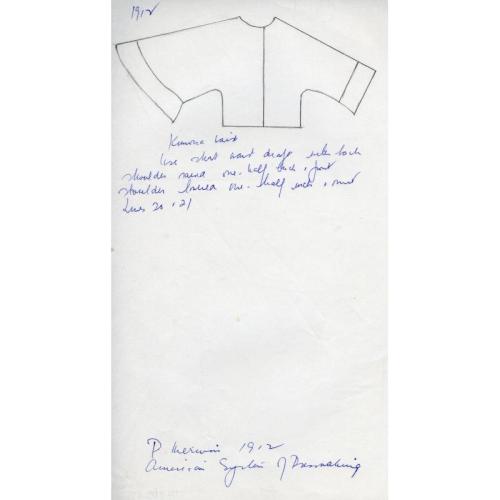 1912
Kimona Waist
Use shirt waist draft with back
shoulder raised one-half inch & front
shoulder lowered one-half inch & omit
Lines 20 & 21
P. Merwin 1912
American System of Dressmaking